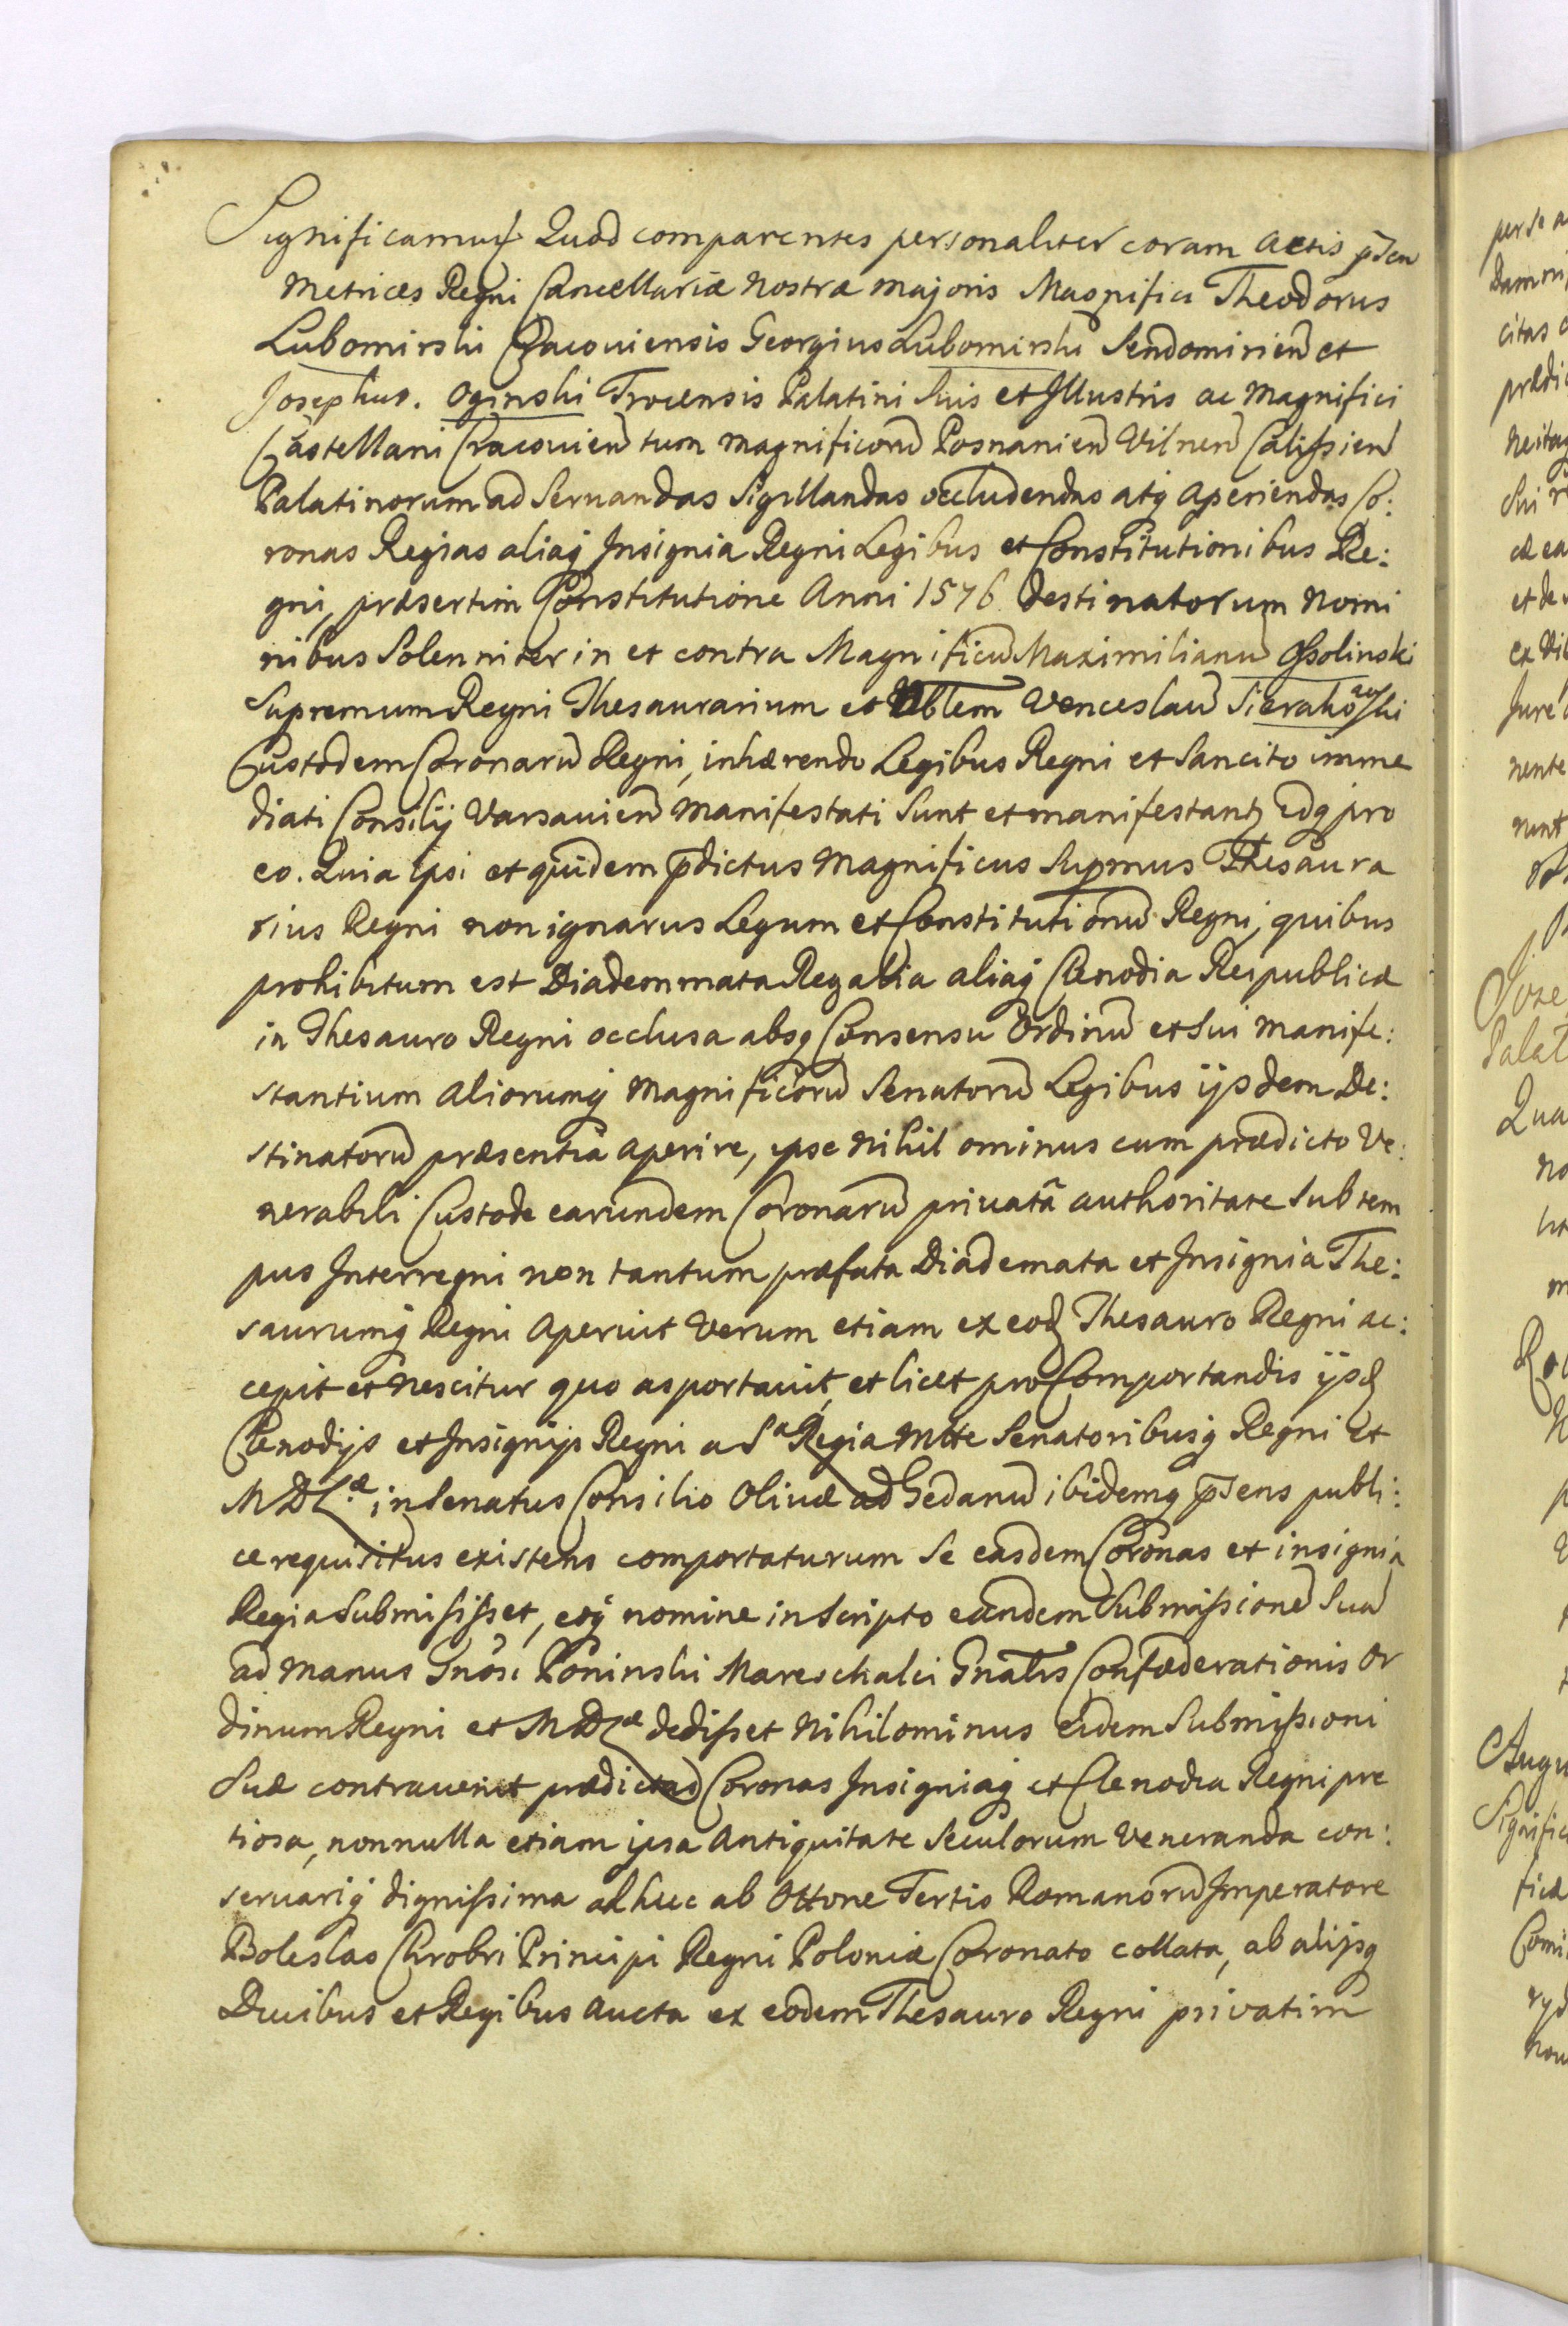 Significamus Quod comparentes personaliter coram actis p̄sen
Metrices Regni Cancellariæ Nostræ majoris Magnifici Theodorus
Lubomirski Cracouiensis Georgius Lubomirski Sendomirien̄ et
Josephus. Oginski Trocensis Palatini Suis et Illustris ac Magnifici
Castellani Cracouien̄ tum magnificorū Posnanien̄ Vilnen̄ Calissien̄
Palatinorum ad Seruandas Sigillandas occludendas atq̢ Aperiendas Co:
ronas Regias aliaq̢ Insignia Regni Legibus et Constitutionibus Re:
gni, præsertim Constitutione Anni 1576 destinatorum Nomi
nibus Solenniter in et contra Magnificū Maximilianū Ossolinski
Supremum Regni Thesaurarium et Vblem Venceslaū Sierakowski
Custodem Coronarū Regni, inhærendo Legibus Regni et Sancito imme
diati Consilÿ Varsauien̄ Manifestati Sunt et manifestant̢ Idq̢ pro
eo. Quia ipsi et quidem p̄dictus Magnificus Supmus Thesaura
rius Regni non ignarus Legum et Constitutionū Regni, quibus
prohibitum est Diademmata Regalia aliaq̢ Clenodia Reipublicæ
in Thesauro Regni occlusa absq̢ Consensu Ordinū et Sui Manife:
stantium Aliorumq̢ Magnificorū Senatorū Legibus ijsdem De:
stinatorū præsentia Aperire, ipse Nihil ominus cum prædicto Ve:
nerabili Custode earundem Coronarū priuatâ authoritate Sub tem
pus Interregni non tantum præfata Diademata et Insignia The:
saurumq̢ Regni Aperuit Verum etiam ex eod̢ Thesauro Regni ac:
cepit et Nescitur quo asportauit, et licet pro Comportandis ijsd̢
Clenodijs et Insignijs Regni a Sᵃ Regia Mtte Senatoribusq̢ Regni Et
MDLæ in Senatus Consilio Oliuæ ad Gedanū ibidemq̢ p̄sens publi:
ce requisitus existens comportaturum Se easdem Coronas et insignia
Regia Submisisset, eoq̢ nomine in Scripto eandem Submissionē Suā
ad Manus Gnōsi Poninski Mareschalci Gnalis Confæderationis Or
dinum Regni et MDLæ dedisset Nihilominus eidem Submissioni
Suæ contrauenit prædictas Coronas Insigniaq̢ et Clenodia Regni pre
tiosa, nonnulla etiam ipsa Antiquitate Seculorum Veneranda con:
seruariq̢ dignissima adhuc ab Ottone Tertio Romanorū Imperatore
Boleslao Chrobri Principi Regni Poloniæ Coronato collata, ab alijsq̢
Ducibus et Regibus Aucta ex eodem Thesauro Regni privatim